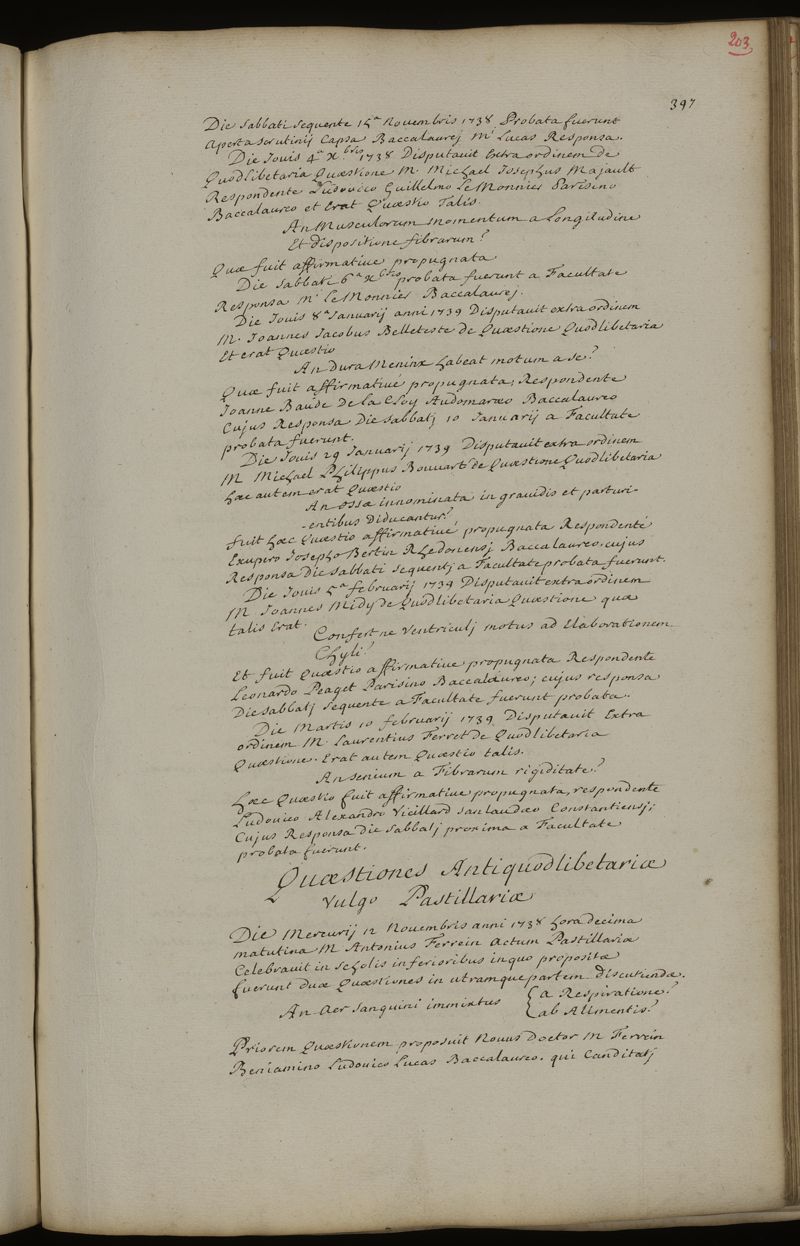 203
397
Die Sabbati Sequente 15ª Novembris 1738 Probata fuerunt
aperta scrutinij Capsa Baccalaurej Mi Lucas Responsa.
Die Jovis 4ª Xbris 1738 Disputavit Extra ordinem de
Quodlibetaria Quæstione M. Michael Josephus Majault
Respondente Ludovico Guillelmo Le Monnier Parisino
Baccalaureo et Erat Quæstio Talis.
An Musculorum momentum a Longitudine
Et dispositione fibrarum?
Quæ fuit affirmative propugnata
Die Sabbati 6ª Xbris probata fuerunt a Facultate
Responsa Mi Le Monnier Baccalaurej.
Die Jovis 8ª Januarij anni 1739 Disputavit extra ordinem
M. Joannes Jacobus Belleteste de Quæstione Quodlibetaria
Et erat Quæstio
An Dura Meninx habeat motum a se?
Quæ fuit affirmativé propugnata, Respondente
Joanne Baude De la Cloy Audomaræo Baccalaureo
Cujus Responsa Die Sabbatj 10 Januarij a Facultate
probata fuerunt.
Die Jovis 29 Januarij 1739 Disputavit extra ordinem
M Michael Philippus Bouvart de Quæstione Quodlibetaria
hæc autem erat Quæstio
An ossa innominata in gravidis et parturi-
-entibus Diducantur?
Fuit hæc Quæstio affirmativé propugnata Respondenté
Exupero Josepho Bertin Rhedonensj Baccalaureo. cujus
Responsa Die Sabbati Sequentj a Facultate probata fuerunt.
Die Jovis 5ª februarij 1739 Disputavit extra ordinem
M Joannes Midy de Quodlibetaria Quæstione quæ
talis Erat.
Confert ne Ventriculj motus ad Elaborationem
Chyli?
Et fuit Quæstio affirmative propugnata Respondente
Leonardo Peaget Parisino Baccalaureo; cujus responsa
Die Sabbatj Sequente a Facultate fuerunt probata.
Die Martis 10 februarij 1739 Disputavit Extra
ordinem M. Laurentius Ferret de Quodlibetaria
Quæstione. Erat autem Quæstio talis.
An Senium a Fibrarum rigiditate?
hæc Quæstio fuit affirmative propugnata, respondente
Ludovico Alexandro Vieillard Sanlaudæo Constantiensj;
Cujus Responsa Die Sabbatj proxima a Facultate
probata fuerunt.
Quæstiones Antiquodlibetariæ
Vulgo Pastillariæ
Die Mercurij 12 Novembris anni 1738 hora decima
matutina M Antonius Ferrein actum Pastillariæ
Celebravit in Scholis inferioribus in quo propositæ
fuerunt duæ Quæstiones in utramque partem Discutiendæ.
An aer Sanguini immixtus { a Respiratione?
{ ab Alimentis?
Priorem Quæstionem proposuit Novus Doctor M Ferrein
Beniamino Ludovico Lucas Baccalaureo. qui Canditatj